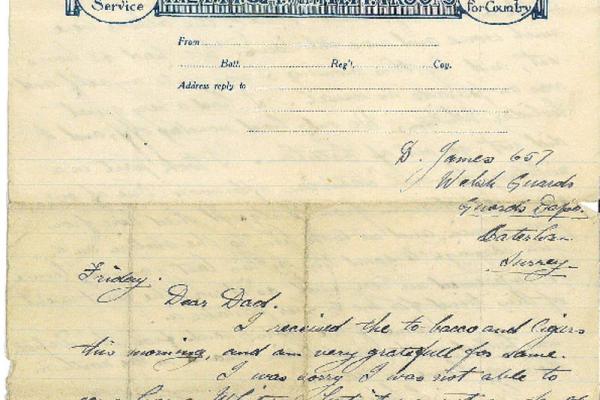 Service
for Country
From
Batt. Reg't. Coy.
Address reply to
D. James 657
Welsh Guards
Guards Depot.
Caterham.
Surrey
Friday.
Dear Dad.
I received the to bacco and Cigars
this morning, and am very gratefull for same.
I was sorry I was not able to